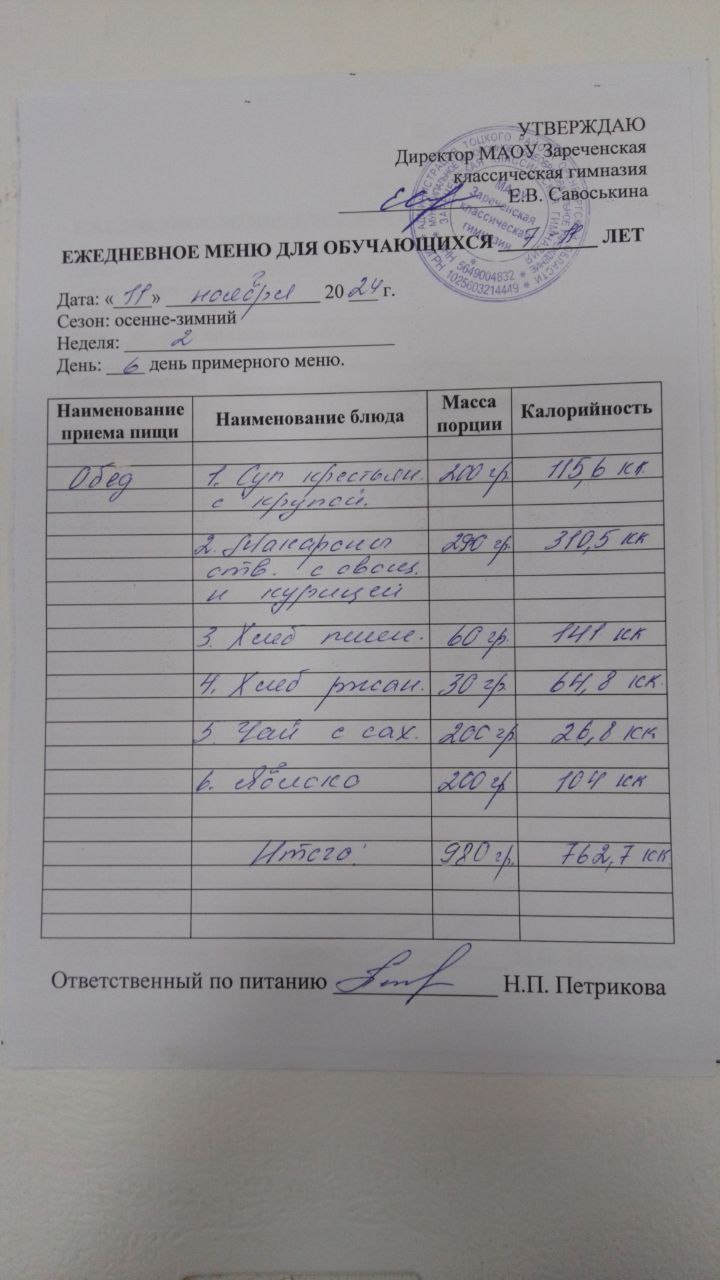 УТВЕРЖДАЮ
Директор МАОУ Зареченская
классическая гимназия
Е.В. Савоськина
МАОУ
Зареченская
классическая
гимназия
ИНН 5649004832 * ОГРН 1025603214449 *
ЕЖЕДНЕВНОЕ МЕНЮ ДЛЯ ОБУЧАЮЩИХСЯ 7 11 ЛЕТ
Дата: «11» ноября 2024 г.
Сезон: осенне-зимний
Неделя: 2
День: 6 день примерного меню.
Наименование приема пищи Наименование блюда Масса порции Калорийность
Обед 1. Суп крестьян. 200 гр 115,6 кк
с крупой.
2. Макароны 290 гр. 310,5 кк
отв. с овощ.
и курицей
3. Хлеб пшен. 60 гр. 141 кк
4. Хлеб ржан. 30 гр. 64,8 кк.
5. Чай с сах. 200 гр 26,8 кк
6. Яблоко 200 гр 104 кк
Итого: 980 гр. 762,7 кк
Ответственный по питанию Н.П. Петрикова